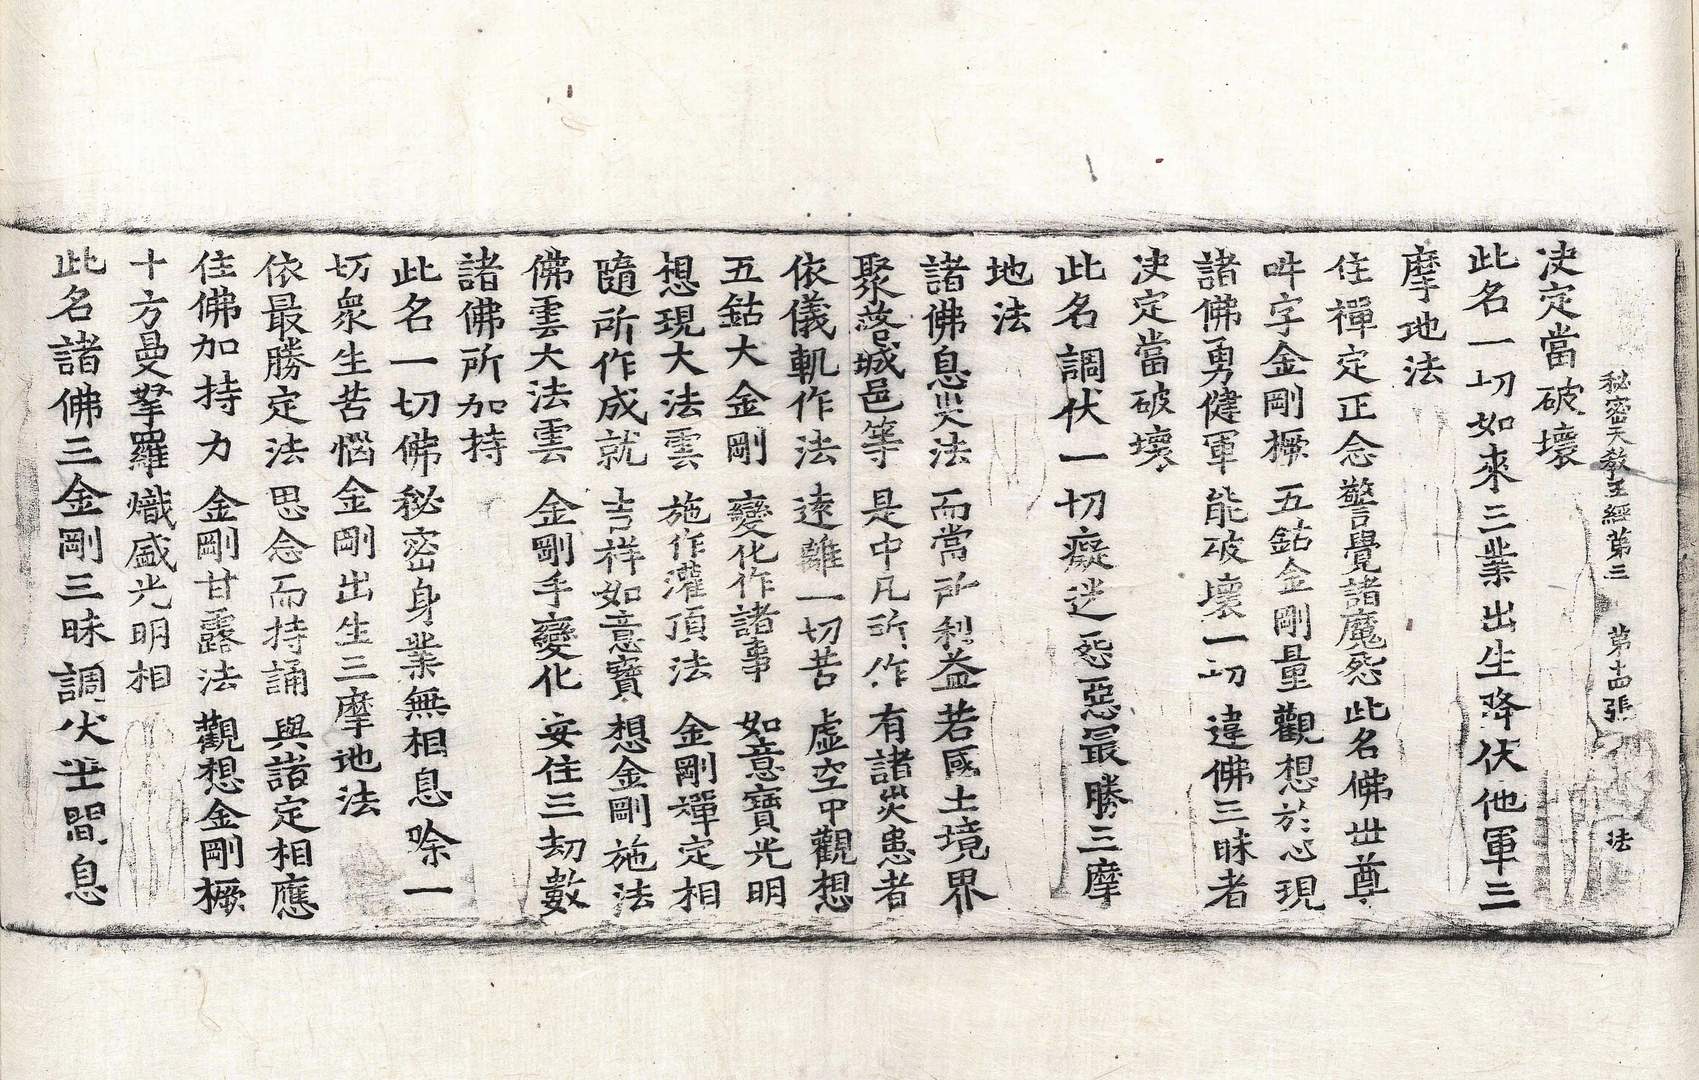 秘密大教王經第三　第十四張　法
决定當破壞
此名一切如來三業出生降伏他軍三
摩地法
住禪定正念警覺諸魔怨此名佛世尊
吽字金剛橛五鈷金剛量觀想於心現
諸佛勇健軍能破壞一切違佛三昧者
决定當破壞
此名調伏一切癡迷惡惡最勝三摩
地法
諸佛息災法而當所利益若國土境界
聚落城邑等是中凡所作有諸災患者
依儀軌作法遠離一切苦虛空中觀想
五鈷大金剛變化作諸事如意寶光明
想現大法雲施作灌頂法金剛禪定相
隨所作成就吉祥如意寶想金剛施法
佛雲大法雲金剛手變化安住三劫數
諸佛所加持
此名一切佛秘密身業無相息除一
切衆生苦惱金剛出生三摩地法
依最勝定法思念而持誦與諸定相應
住佛加持力金剛甘露法觀想金剛橛
十方曼拏羅熾盛光明相
此名諸佛三金剛三昧調伏世間息